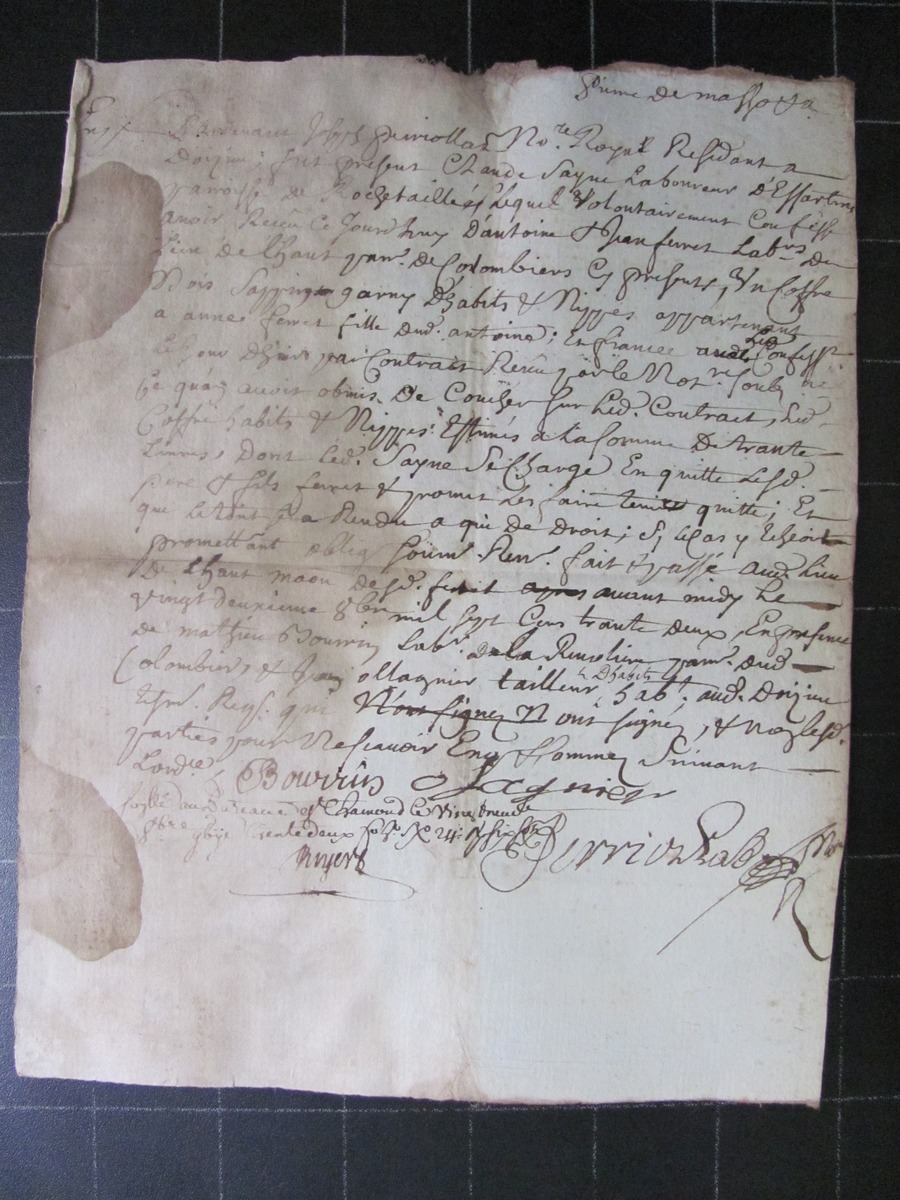 Pardevant Joseph perriollat No.re Royal Residant a
Doizieu; fut present Claude Sayne Laboureur D'Essartines
parroisse de Rochetaillée; Lequel Volontairement Confesse
avoir Receu Ce Jourdhuy D'antoine & Jean ferret Lab.rs du
lieu de Lhaut par.e De Colombiers Cy presents, Un Coffre
Bois Sappin garny D'habits & Nippes appartenant
a anne ferret fille dud. antoine; Et fiancée aud. Confess.
Le Jour Dhier par Contract Receu par le Not.re soub.né
Ce qu'on avoit obmis De Coucher sur Led. Contract, Led.
Coffre habits & Nippes Estimés a la Somme De trante
Livres, Dont Led. Sayne Se Charge En quitte Lesd.
pere & fils ferret & promet Les faire tenir quitte; Et
que le tout sera Rendu a qui de Droit; Sy le Cas y Echeoit
promettant oblig. soum. Ren. fait & passé aud. lieu
De Lhaut maon desd. ferret apres avant midy Le
vingt deuxieme 8bre mil sept Cens trante deux, En presence
de mathieu Bourrin Lab.r de La par.e dud.
Colombiers & Jean ollagnier tailleur D'habits hab.t aud. Doizieu
tesm. Req. qui Nont signez N ont signé, & non lesd.
parties pour Ne scavoir Enq. & sommez Suivant
Lord.e
Bourrin Olagnier
au Bureau de St Chamond le vingt
8bre trente deux
Perriollat